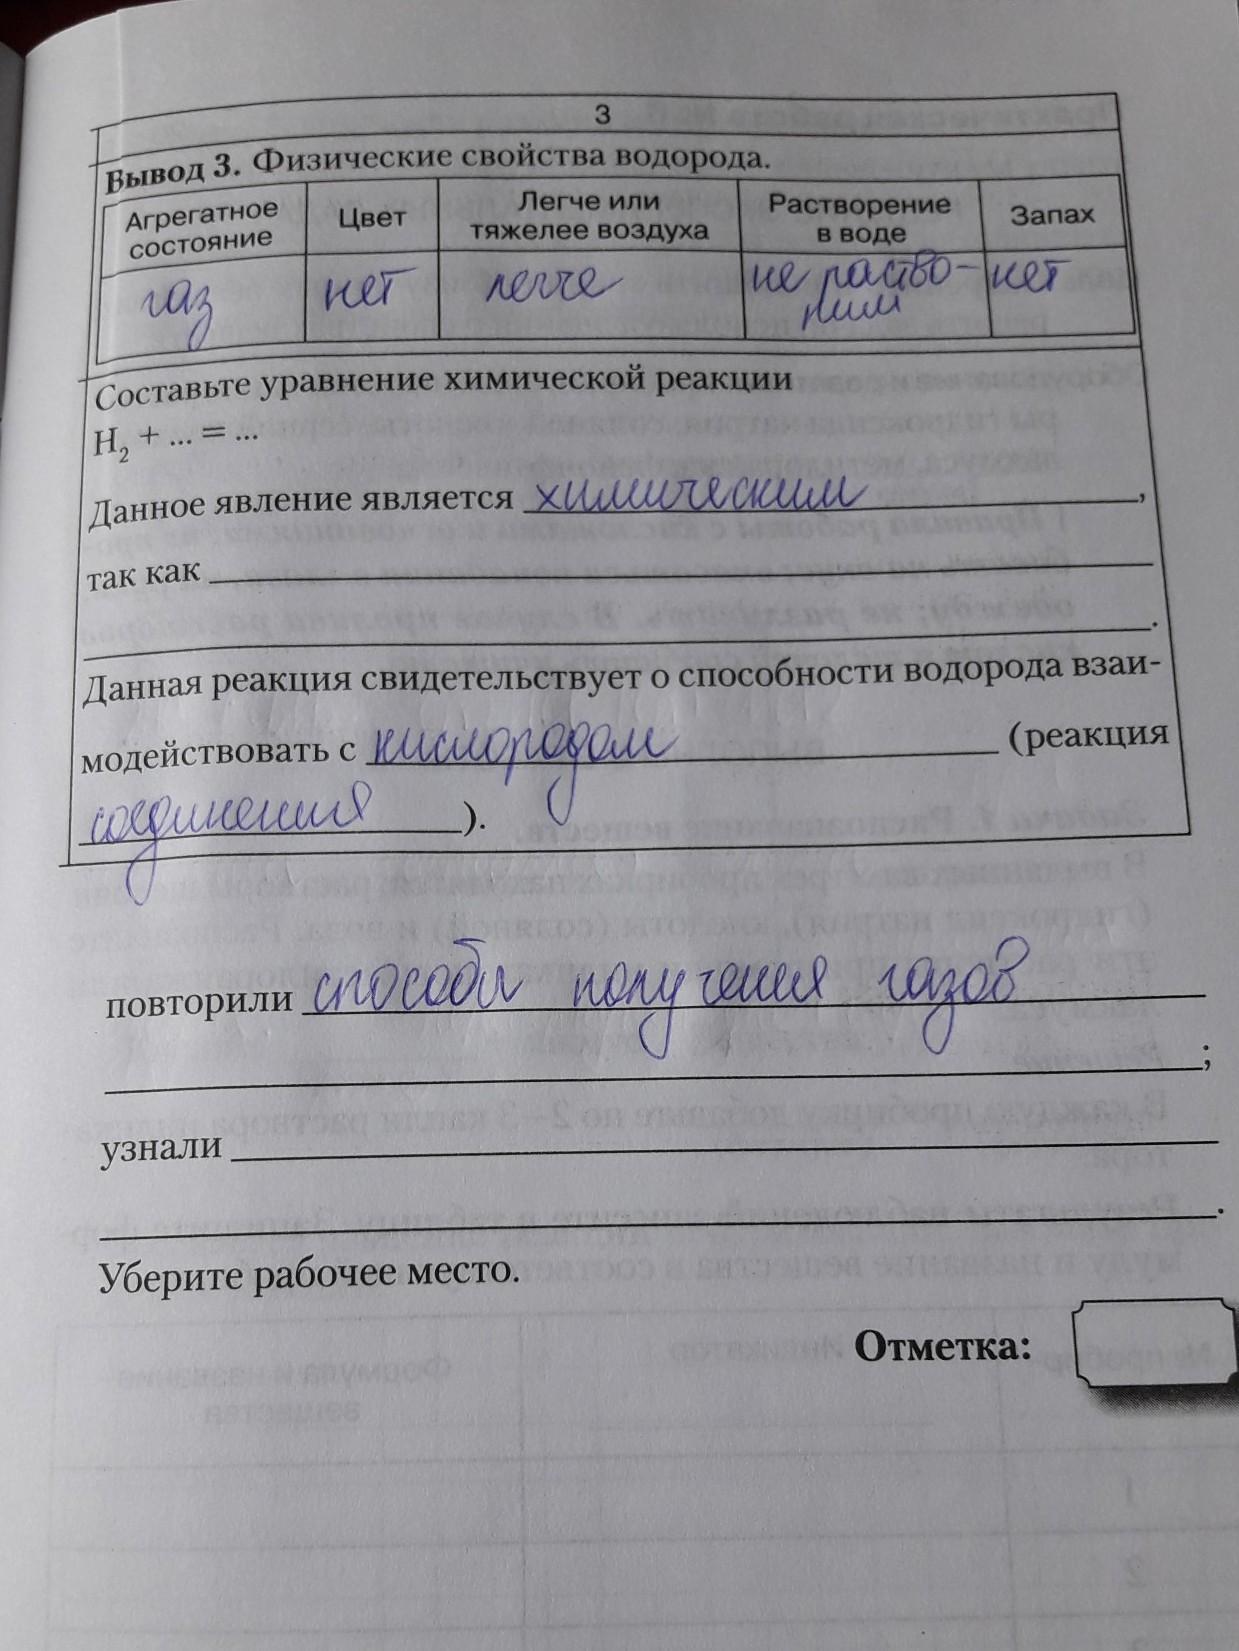 3
Вывод 3. Физические свойства водорода.
Агрегатное состояние Цвет Легче или тяжелее воздуха Растворение в воде Запах
газ нет легче не раство-рим нет
Составьте уравнение химической реакции
H₂ + ... = ...
Данное явление является химическим,
так как
.
Данная реакция свидетельствует о способности водорода взаи-
модействовать с кислородом (реакция
соединения ).
повторили способы получения газов
;
узнали
.
Уберите рабочее место.
Отметка: